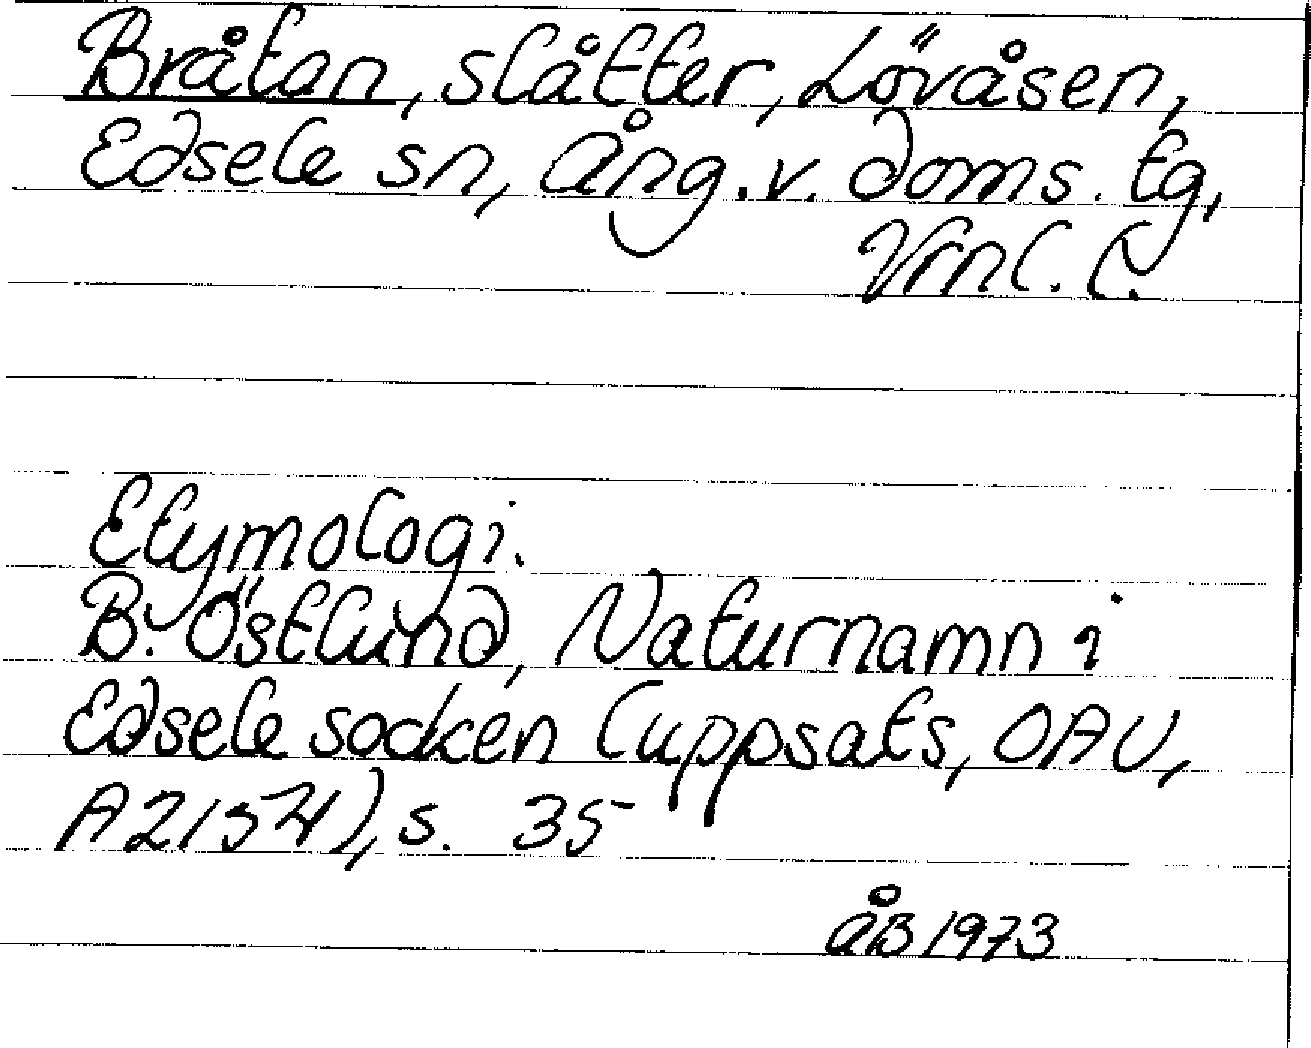 Bråtan, slåtter, Lövåsen,
Edsele sn, Ång. v. doms. tg,
Vrnl. l.
Etymologi.
B. Östlund, Naturnamn i
Edsele socken (uppsats, OAU,
A2154), s. 35
åB 1973